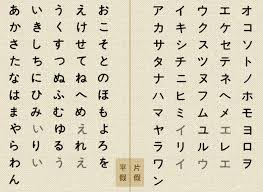 あかさたなはまやらわん
いきしちにひみいりい
うくすつぬふむゆるう
えけせてねへめえれえ
おこそとのほもよろを
平假
片假
アカサタナハマヤラワン
イキシチニヒミイリイ
ウクスツヌフムユルウ
エケセテネヘメエレエ
オコソトノホモヨロヲ